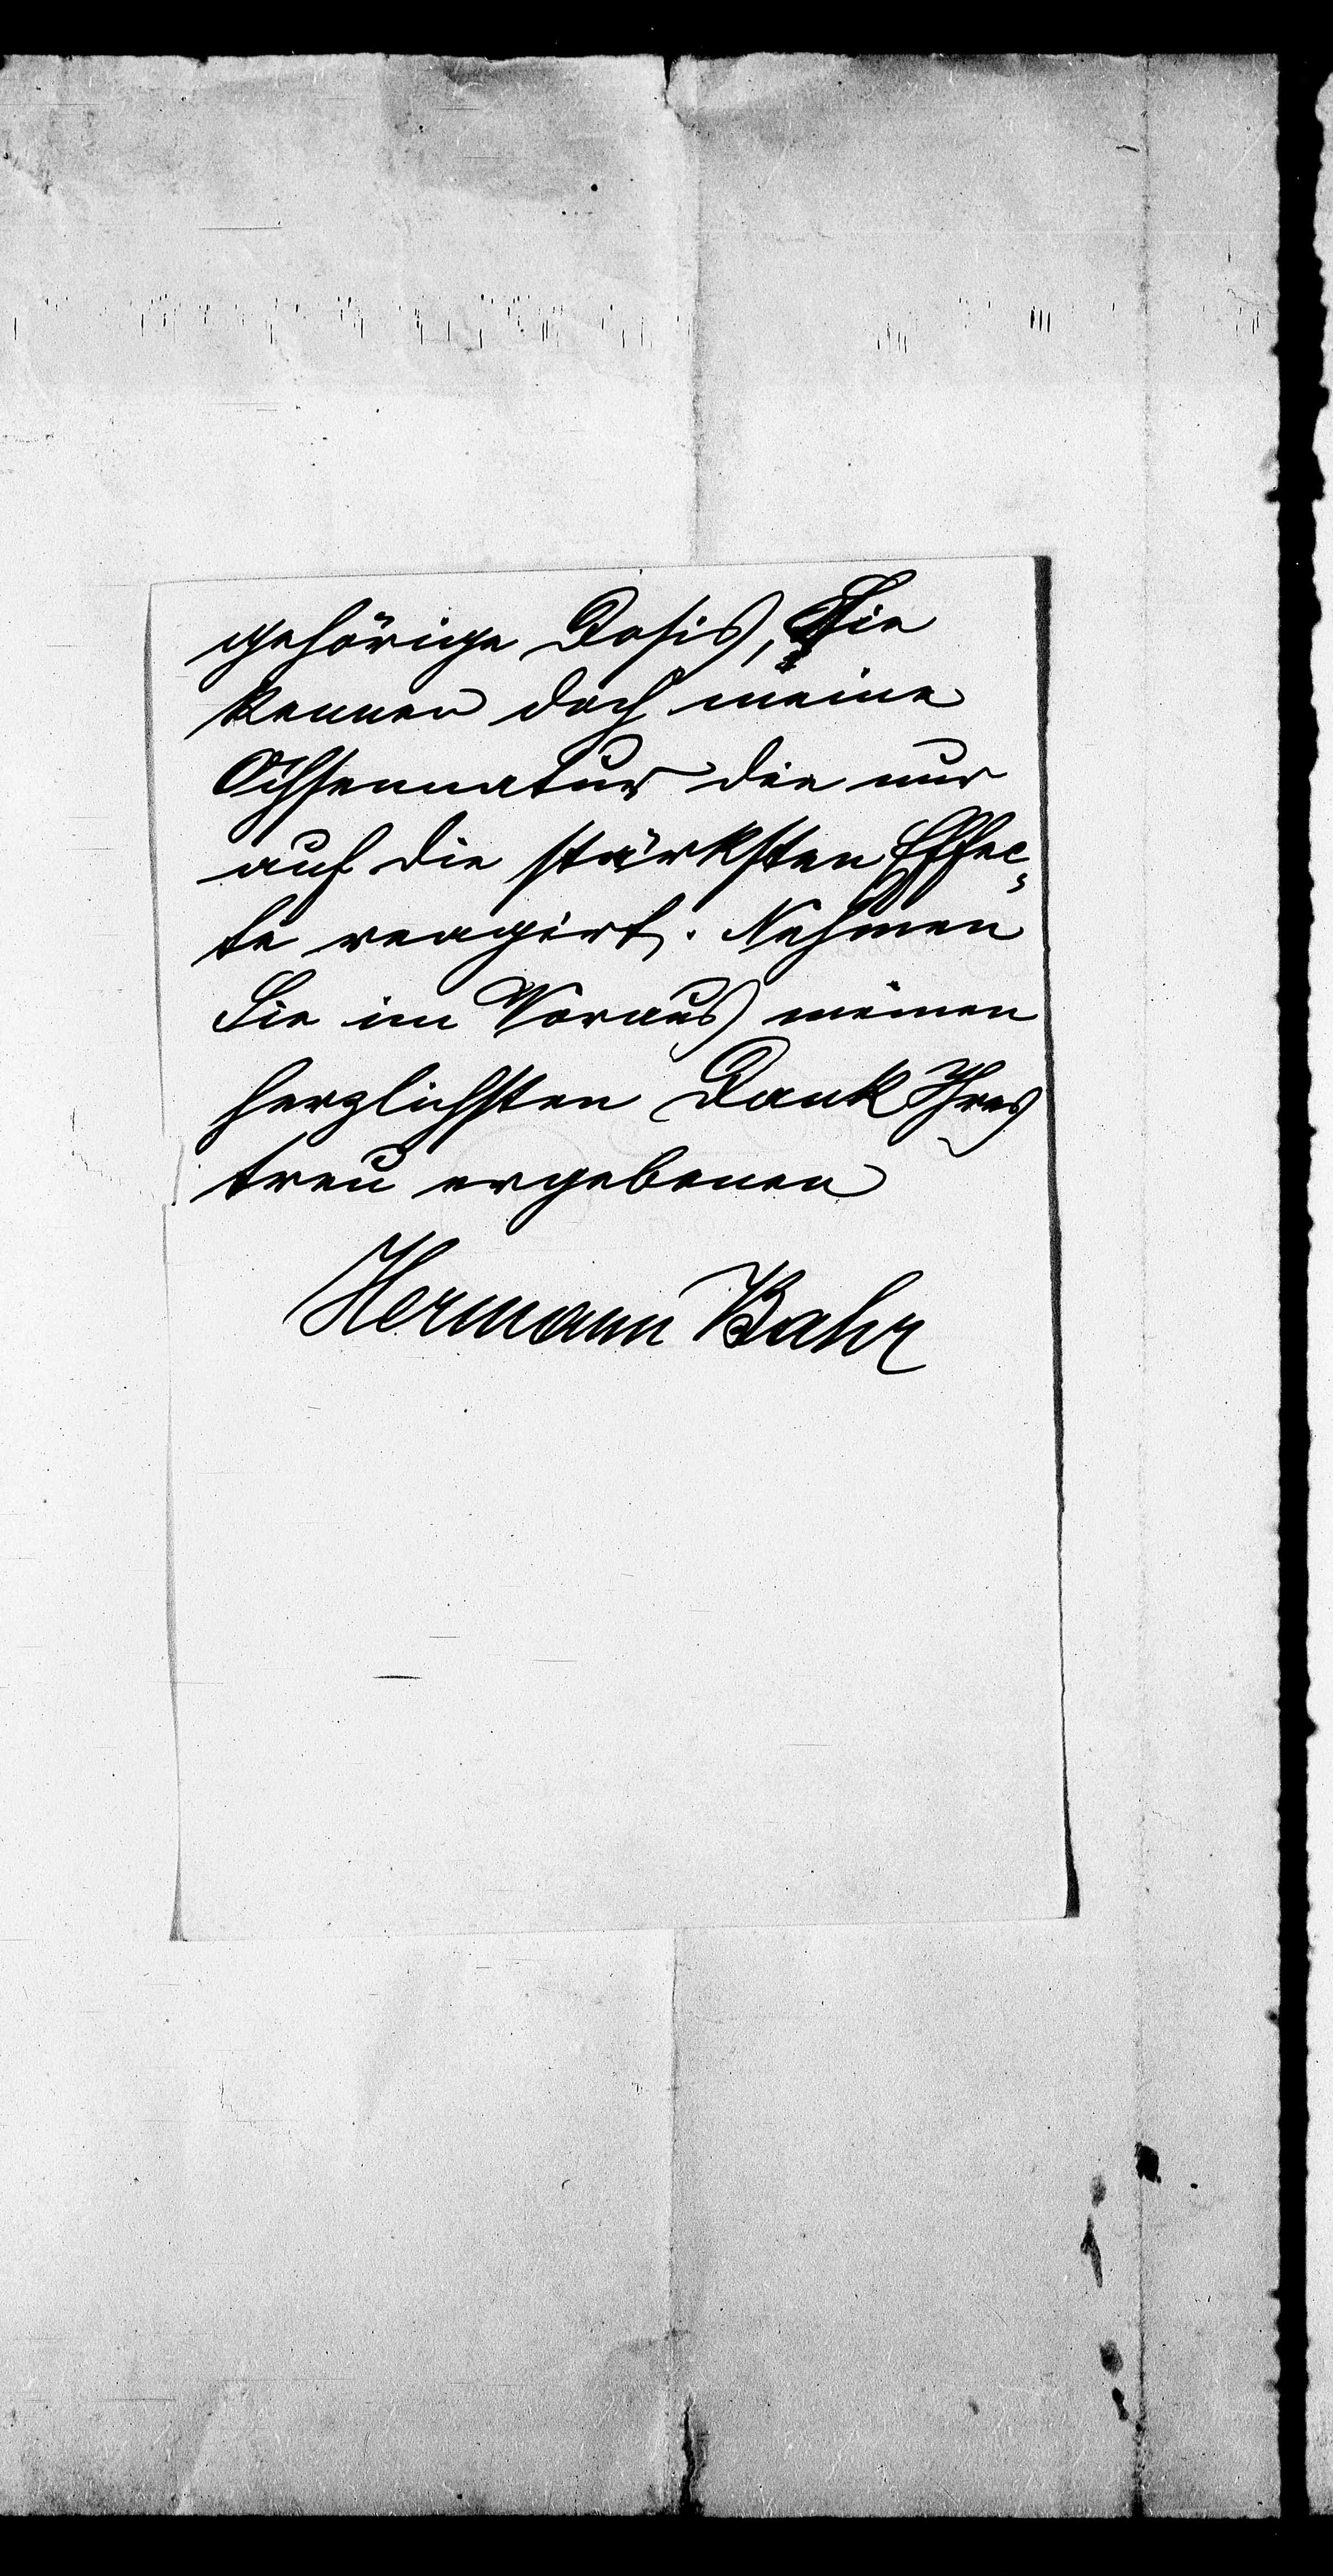 gehörige Dosis, Sie
kennen doch meine
Ochsennatur die nur
auf die stärksten Effec¬
te reagirt. Nehmen
Sie im Voraus meinen
herzlichsten Dank Ihres
treu ergebenen
Hermann Bahr